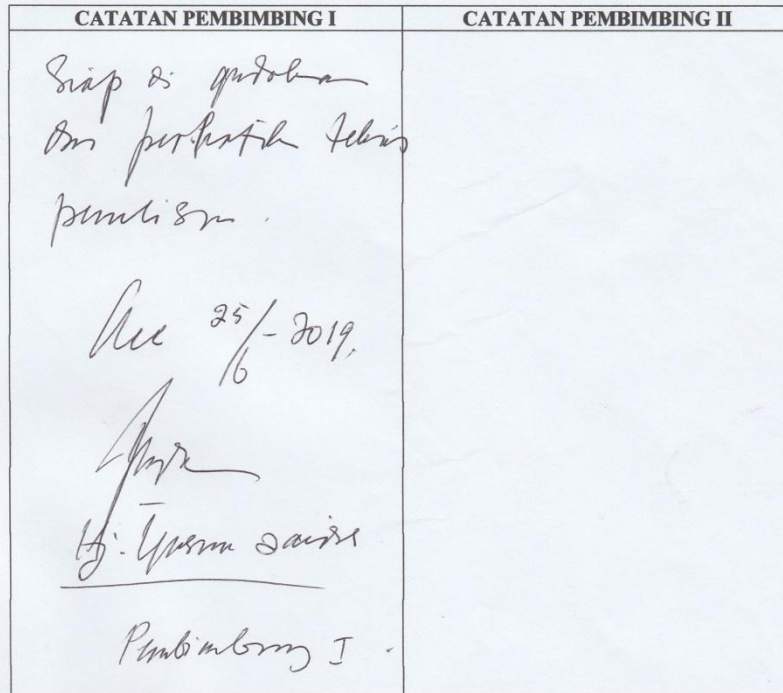 CATATAN PEMBIMBING I
CATATAN PEMBIMBING II
Siap di
dan perhatikan teknis
penulisan.
Acc 25/6-2019.
Hj.
Pembimbing I.